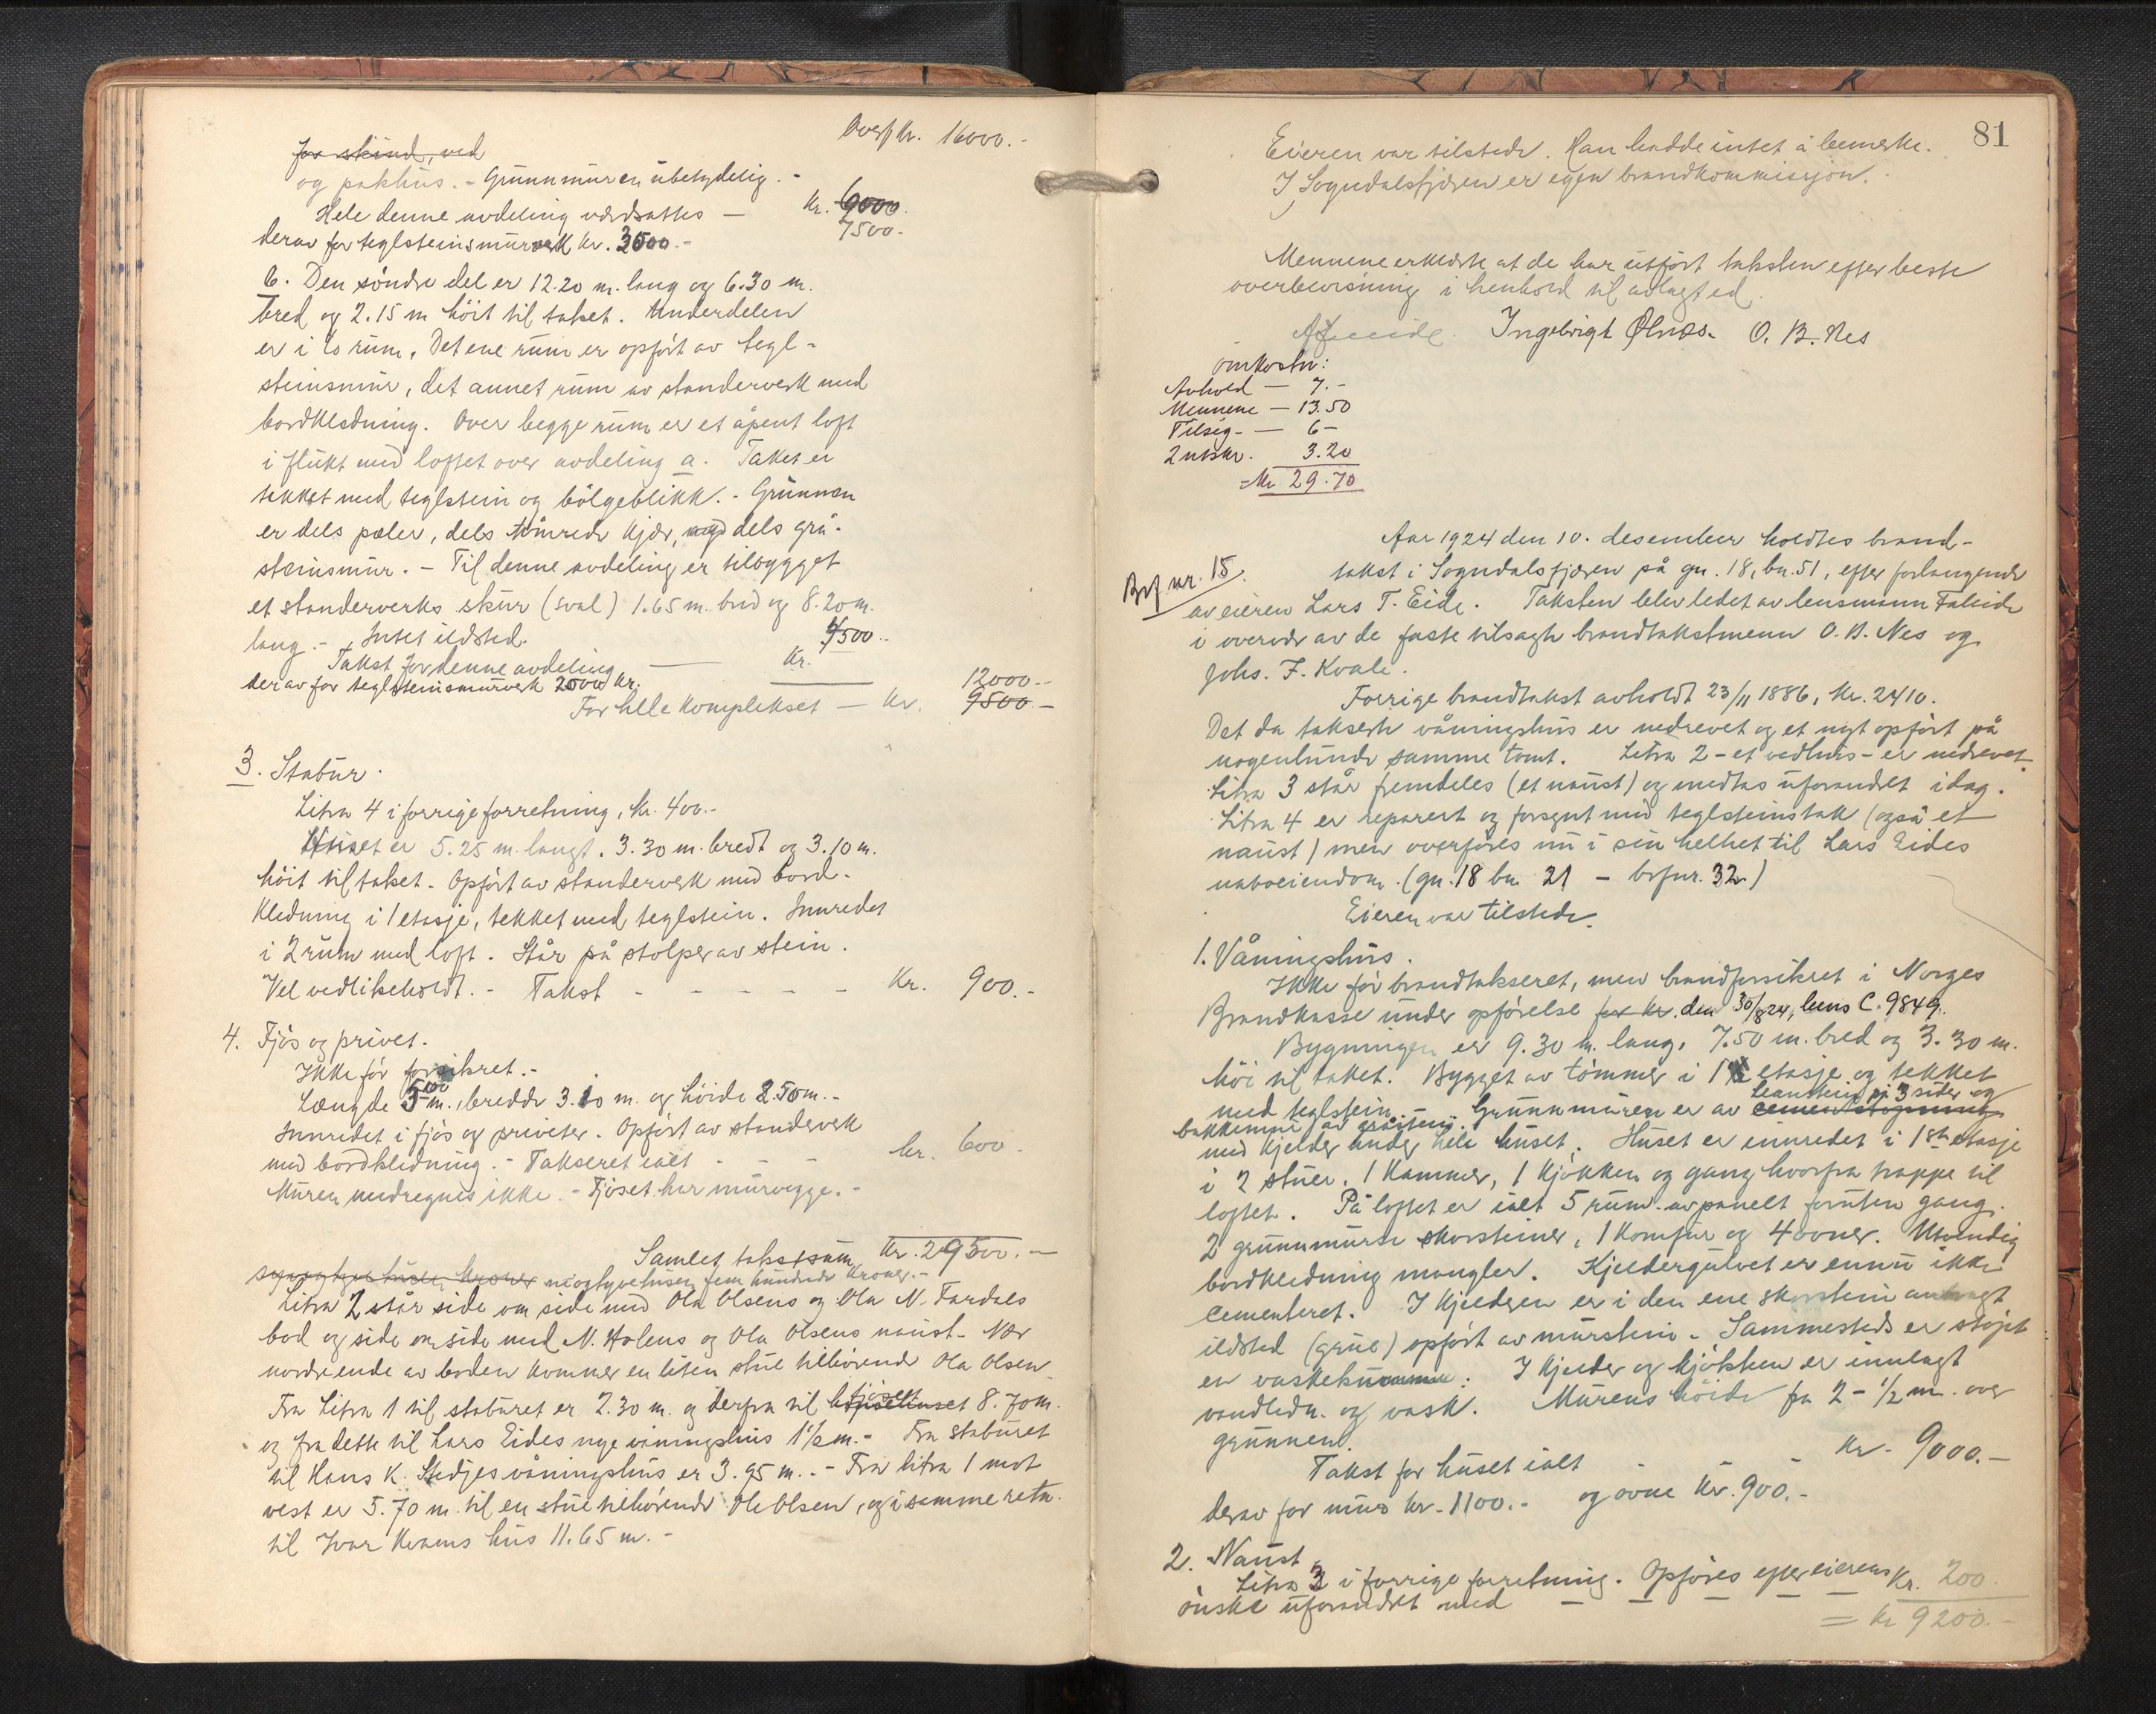 Overf. Kr. 16000.-
for skind, ved
og pakhus. - Grunnmuren ubetydelig. -
Hele denne avdeling verdsattes - Kr. 6000.
7500.-
derav for teglsteinsmurverk kr. 3500.-
b. Den söndre del er 12.20 m. lang og 6.30 m.
bred og 2.15 m höit til taket. Underdelen
er i to rum. Det ene rum er opført av tegl-
steinsmur, det annet rum av standerverk med
bordkledning. Over begge rum er et åpent loft
i flukt med loftet over avdeling a. Taket er
tekket med teglstein og bölgeblikk. - Grunnen
er dels pæler, dels tömrede kjær, dels grå-
steinsmur. - Til denne avdeling er tilbygget
et standerverks skur (sval) 1.65 m. bred og 8.20 m.
lang. - Intet ildsted.
Takst for denne avdeling — Kr. 4500.-
derav for teglsteinsmurverk 2500 kr.
12000.-
For hele komplekset — Kr. 9500.-
3. Stabur.
Litra 4 i forrige forretning, kr. 400.-
Huset er 5.25 m. langt, 3.30 m. bredt og 3.10 m.
höit til taket. Opført av standerverk med bord-
kledning i 1 etasje, tekket med teglstein. Innredet
i 2 rum med loft. Står på stolper av stein.
Vel vedlikeholdt. - Takst - - - - - Kr. 900.-
4. Fjös og privet.
Ikke för forsikret. -
Længde 5.00 m., bredde 3.10 m. og höide 2.50 m. -
Innredet i fjös og priveter. Opført av standerverk
med bordkledning. - Takseret ialt - - - kr. 600.
Muren medregnes ikke. - Fjöset har murvegge. -
Samlet takstsum Kr. 29500.-
niogtyvetusen fem hundrede kroner. -
Litra 2 står side om side med Ola Olsens og Ola N. Fardals
bod og side om side med N. Holens og Ola Olsens naust. Nær
nordre ende av boden kommer en liten stue tilhörende Ola Olsen.
Fra Litra 1 til staburet er 2.30 m. og derfra til fjöset 8.70 m.
og fra dette til Lars Eides nye våningshus 1 1/2 m. - Fra staburet
til Hans K. Stedjes våningshus er 3.95 m. - Fra litra 1 mot
vest er 5.70 m. til en stue tilhörende Ole Olsen, og i samme retn.
til Ivar Kvams hus 11.65 m. -
81
Eieren var tilstede. Han hadde intet å bemerke.
I Sogndalsfjæren er egen brandkommisjon.
Mennene erklærte at de har utfört taksten efter beste
overbevisning i henhold til avlagt ed.
A Faleide. Ingebrigt Ølnæs. O. B. Nes
Omkostn:
Avhold — 7.-
Mennene — 13.50
Tilsig. — 6-
2 utskr. 3.20
= Kr 29.70
Aar 1924 den 10. desember holdtes brand-
Brf nr. 15.
takst i Sogndalsfjæren på gn. 18, bn. 51, efter forlangende
av eieren Lars T. Eide. Taksten blev ledet av lensmann Faleide
i overvær av de faste tilsagte brandtakstmenn O. B. Nes og
Johs. F. Kvale.
Forrige brandtakst avholdt 23/11 1886, Kr. 2410.
Det da takserte våningshus er nedrevet og et nyt opfört på
nogenlunde samme tomt. Litra 2 - et vedhus - er nedrevet.
Litra 3 står fremdeles (et naust) og medtas uforandret idag.
Litra 4 er reparert og forsynt med teglsteinstak (også et
naust) men overföres nu i sin helhet til Lars Eides
naboeiendom. (gn. 18 bn. 21 - brfnr. 32.)
Eieren var tilstede.
1. Våningshus.
Ikke för brandtakseret, men brandforsikret i Norges
Brandkasse under opförelse for kr. den 30/8 24, lens C. 9849.
Bygningen er 9.30 m. lang, 7.50 m. bred og 3.30 m.
höi til taket. Bygget av tömmer i 1 etasje og tekket
med teglstein. - Grunnmuren er av cementstöpning på 3 sider og
bakkemur av gråstein
med kjelder under hele huset. Huset er innredet i 1ste etasje
i 2 stuer, 1 kammer, 1 kjökken og gang hvorfra trappe til
loftet. På loftet er ialt 5 rum avpanelt foruten gang.
2 grunnmurte skorsteiner, 1 komfur og 4 ovner. Utvendig
bordkledning mangler. Kjeldergulvet er ennu ikke
cementeret. I kjelderen er i den ene skorstein anbragt
ildsted (grue) opfört av murstein. Sammesteds er stöpt
en vaskekum. I kjelder og kjökken er innlagt
vandledn. og vask. Murens höide fra 2 - 1/2 m. over
grunnen.
Takst for huset ialt - - - kr. 9000.-
derav for mur kr. 1100.- og ovne kr. 900.-
2. Naust.
Litra 3 i forrige forretning. Opföres efter eierens
önske uforandret med — — — — Kr. 200.
= Kr 9200.-